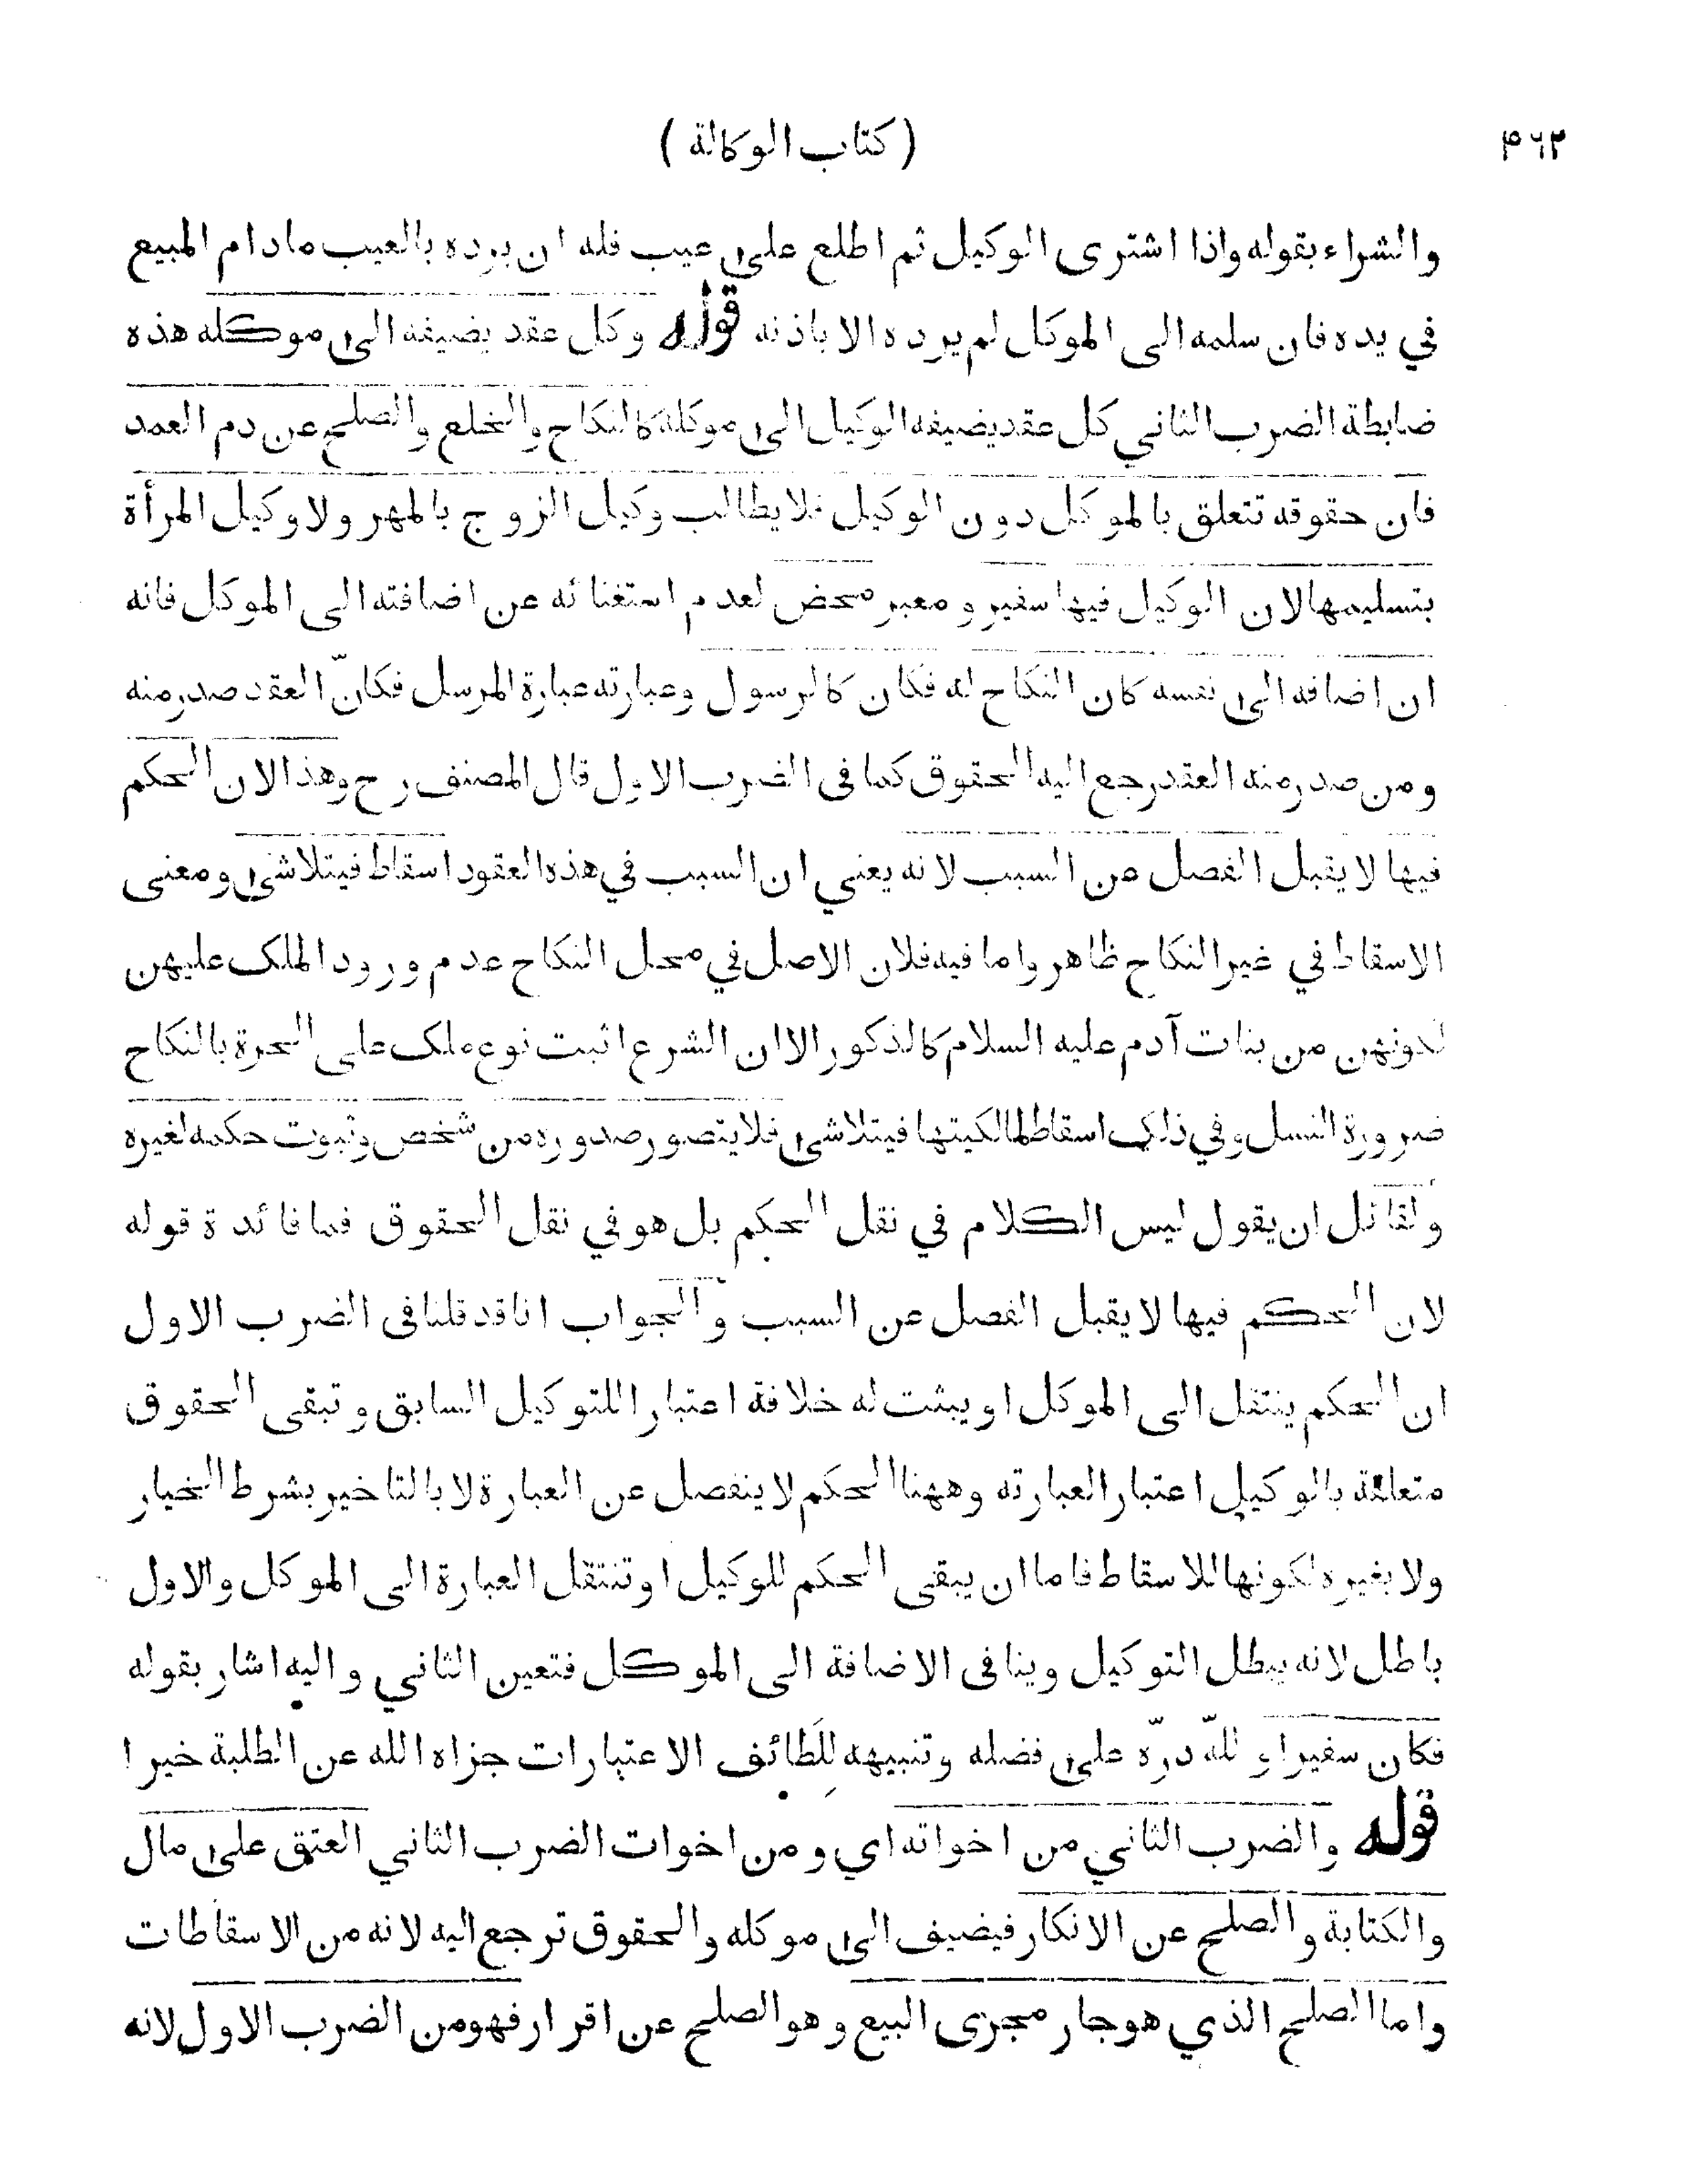 ٤٦٢ ( كتاب الوكالة )
والشراء بقوله واذا اشترى الوكيل ثم اطلع على عيب فله ان يرده بالعيب مادام المبيع
في يده فان سلمه الى الموكل لم يرده الا باذنه قوله وكل عقد يضيفه الى موكله هذه
ضابطة الضرب الثاني كل عقد يضيفه الوكيل الى موكله كالنكاح والخلع والصلح عن دم العمد
فان حقوقه تتعلق بالموكل دون الوكيل فلا يطالب وكيل الزوج بالمهر ولا وكيل المرأة
بتسليمها لان الوكيل فيها سفير و معبر محض لعدم استغنائه عن اضافته الى الموكل فانه
ان اضافه الى نفسه كان النكاح له فكان كالرسول وعبارته عبارة المرسل فكانّ العقد صدر منه
و من صدر منه العقد رجع اليه الحقوق كما فى الضرب الاول قال المصنف رح وهذا لان الحكم
فيها لا يقبل الفصل عن السبب لانه يعني ان السبب في هذه العقود اسقاط فيتلاشى و معنى
الاسقاط في غير النكاح ظاهر واما فيه فلان الاصل في محل النكاح عدم ورود الملك عليهن
لكونهن من بنات آدم عليه السلام كالذكور الا ان الشرع اثبت نوع ملك على الحرة بالنكاح
ضرورة النسل وفي ذلك اسقاط لمالكيتها فيتلاشى فلا يتصور صدوره من شخص وثبوت حكمه لغيره
ولقائل ان يقول ليس الكلام في نقل الحكم بل هو في نقل الحقوق فما فائدة قوله
لان الحكم فيها لا يقبل الفصل عن السبب والجواب انا قد قلنا فى الضرب الاول
ان الحكم ينتقل الى الموكل او يبثت له خلافة اعتبارا للتوكيل السابق و تبقى الحقوق
متعلقة بالوكيل اعتبارا لعبارته وههنا الحكم لا ينفصل عن العبارة لا بالتاخير بشرط الخيار
ولا بغيره لكونها للاسقاط فاما ان يبقى الحكم للوكيل او تنتقل العبارة الى الموكل والاول
باطل لانه يبطل التوكيل وينافى الاضافة الى الموكل فتعين الثاني واليه اشار بقوله
فكان سفيرا و للّه درّه على فضله وتنبيهه للَطائف الاعتبارات جزاه الله عن الطلبة خيرا
قوله والضرب الثاني من اخواته اي و من اخوات الضرب الثاني العتق على مال
والكتابة والصلح عن الانكار فيضيف الى موكله والحقوق ترجع اليه لانه من الاسقاطات
واما الصلح الذي هو جار مجرى البيع و هو الصلح عن اقرار فهو من الضرب الاول لانه